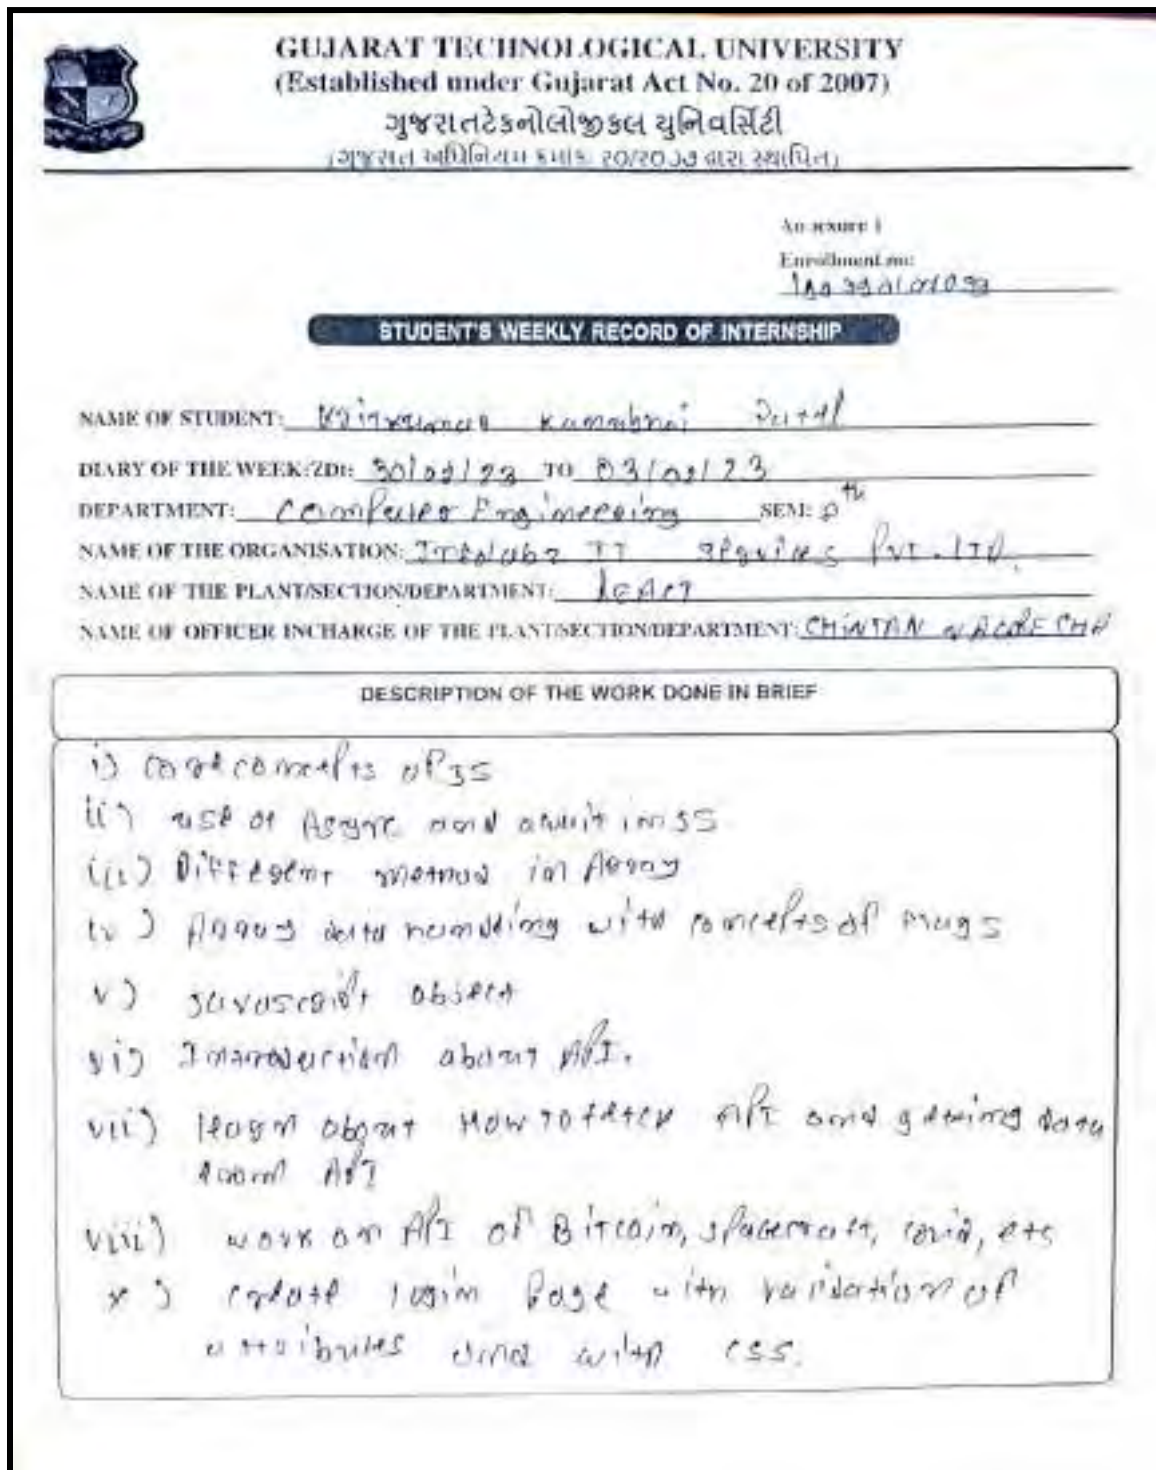 GUJARAT TECHNOLOGICAL UNIVERSITY
(Established under Gujarat Act No. 20 of 2007)
ગુજરાતટેકનોલોજીકલ યુનિવર્સિટી
(ગુજરાત અધિનિયમ ક્રમાંક: ૨૦/૨૦૦૭ દ્વારા સ્થાપિત)
Annexure 1
Enrollment no:
STUDENT'S WEEKLY RECORD OF INTERNSHIP
NAME OF STUDENT: Patel
DIARY OF THE WEEK: TO
DEPARTMENT: Computer Engineering SEM: 8th
NAME OF THE ORGANISATION: IT Services Pvt. LTD.
NAME OF THE PLANT/SECTION/DEPARTMENT: REACT
NAME OF OFFICER INCHARGE OF THE PLANT/SECTION/DEPARTMENT: CHINTAN
DESCRIPTION OF THE WORK DONE IN BRIEF
i) core concepts of JS
ii) use of Async and await in JS
iii) Different method in Array
iv) Array data handling with concepts of
v) Javascript object
vi) Introduction about API.
vii) learn about How to fetch API and getting data
from API
viii) work on API of Bitcoin, spacecraft, covid, etc
x) create login page with validation of
attributes and with CSS.